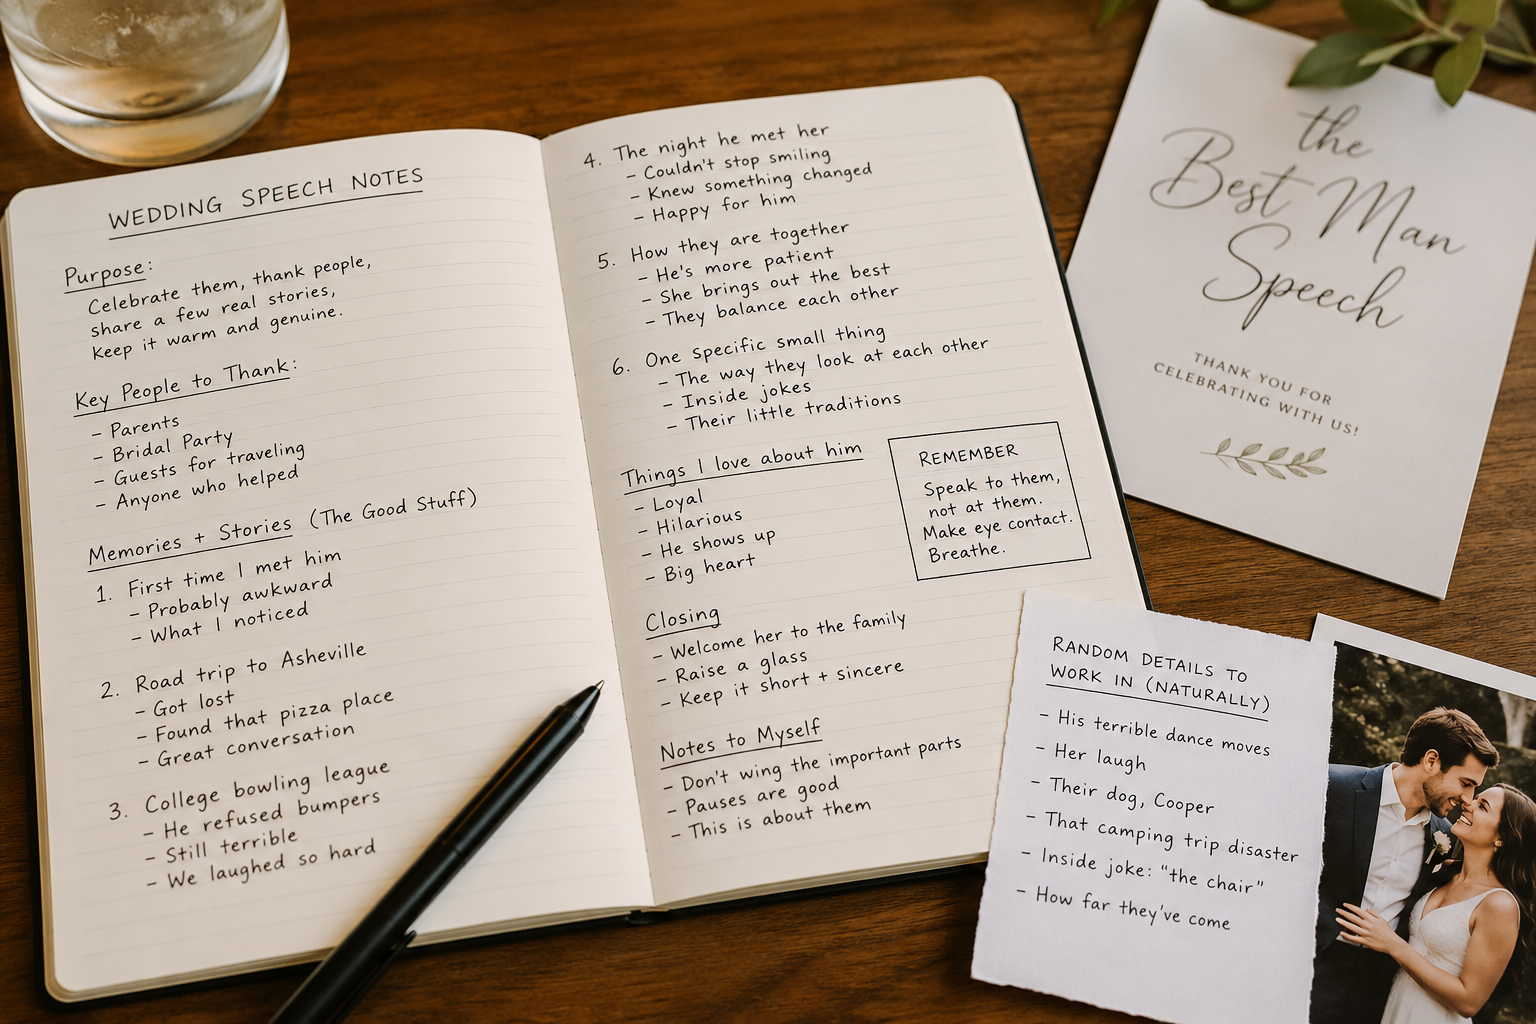 WEDDING SPEECH NOTES
Purpose:
Celebrate them, thank people,
share a few real stories,
keep it warm and genuine.
Key People to Thank:
- Parents
- Bridal Party
- Guests for traveling
- Anyone who helped
Memories + Stories (The Good Stuff)
1. First time I met him
- Probably awkward
- What I noticed
2. Road trip to Asheville
- Got lost
- Found that pizza place
- Great conversation
3. College bowling league
- He refused bumpers
- Still terrible
- We laughed so hard
4. The night he met her
- Couldn't stop smiling
- Knew something changed
- Happy for him
5. How they are together
- He's more patient
- She brings out the best
- They balance each other
6. One specific small thing
- The way they look at each other
- Inside jokes
- Their little traditions
Things I love about him
- Loyal
- Hilarious
- He shows up
- Big heart
REMEMBER
Speak to them,
not at them.
Make eye contact.
Breathe.
Closing
- Welcome her to the family
- Raise a glass
- Keep it short + sincere
Notes to Myself
- Don't wing the important parts
- Pauses are good
- This is about them
the
Best Man
Speech
THANK YOU FOR
CELEBRATING WITH US!
RANDOM DETAILS TO
WORK IN (NATURALLY)
- His terrible dance moves
- Her laugh
- Their dog, Cooper
- That camping trip disaster
- Inside joke: "the chair"
- How far they've come